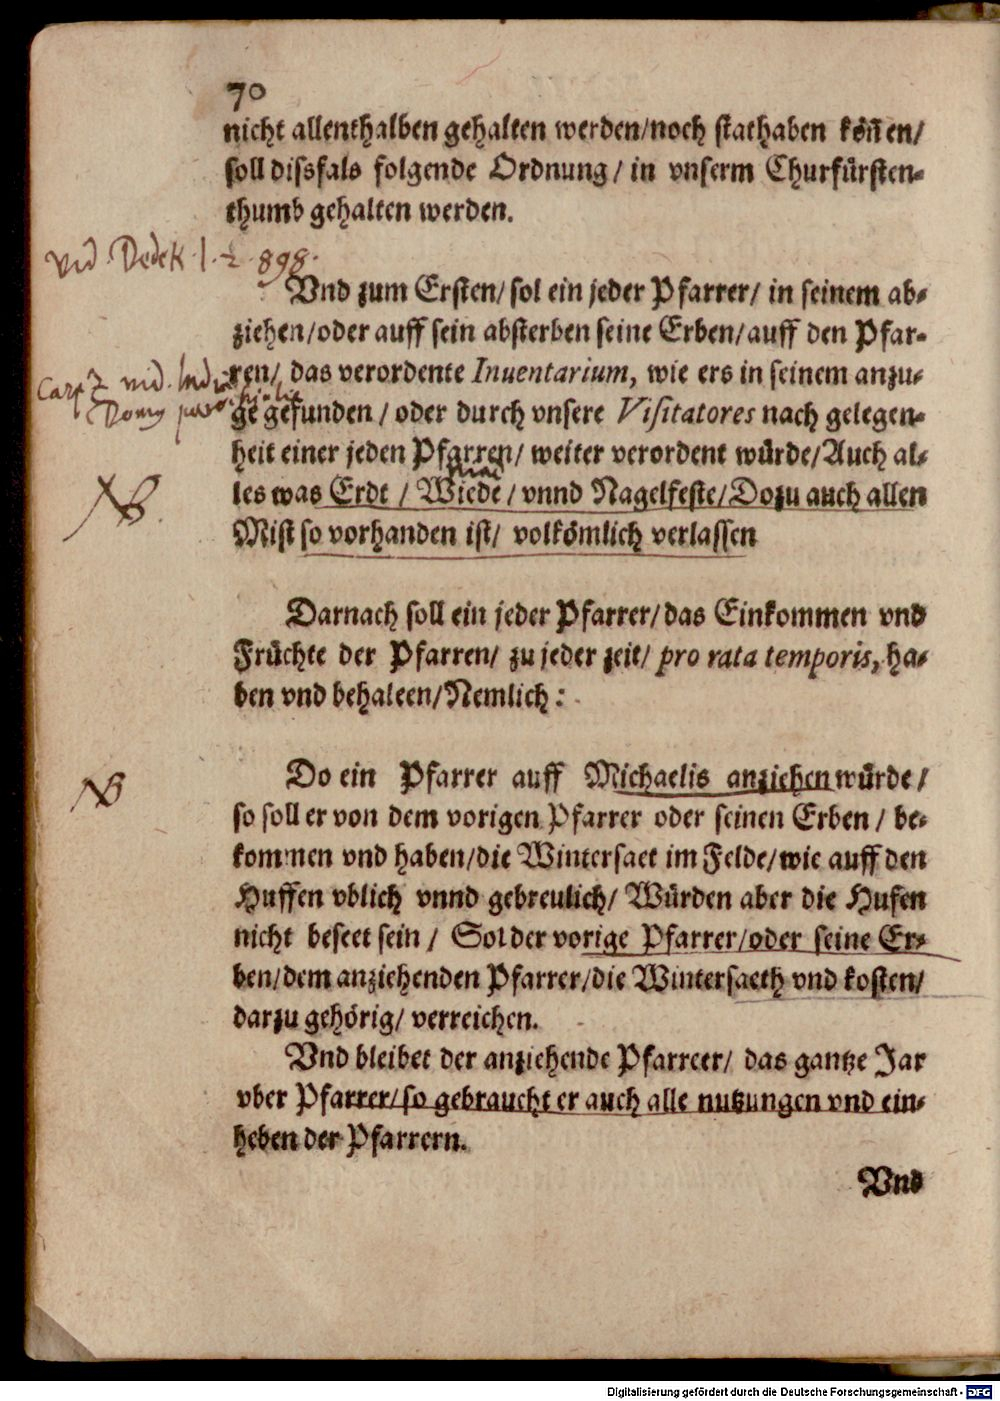 70
nicht allenthalben gehalten werden/noch stathaben köñen/
soll dissfals folgende Ordnung/ in vnserm Churfürsten-
thumb gehalten werden.
vid Dedek l. 2 898.
Vnd zum Ersten/ sol ein jeder Pfarrer/ in seinem ab-
ziehen/oder auff sein absterben seine Erben/auff den Pfar-
Carpz vid.
ren/ das verordente Inuentarium, wie ers in seinem anzu-
ge gefunden/ oder durch vnsere Visitatores nach gelegen-
heit einer jeden Pfarren/ weiter verordent würde/Auch al-
NB.
les was Erdt/ Wiede/ vnnd Nagelfeste/Dozu auch allen
Mist so vorhanden ist/ volkömlich verlassen
Darnach soll ein jeder Pfarrer/das Einkommen vnd
Früchte der Pfarren/ zu jeder zeit/ pro rata temporis, ha-
ben vnd behaleen/Nemlich:
NB
Do ein Pfarrer auff Michaelis anziehen würde/
so soll er von dem vorigen Pfarrer oder seinen Erben/ be-
kommen vnd haben/die Wintersaet im Felde/wie auff den
Huffen vblich vnnd gebreulich/ Würden aber die Hufen
nicht beseet sein/ Sol der vorige Pfarrer/oder seine Er-
ben/dem anziehenden Pfarrer/die Wintersaeth vnd kosten/
darzu gehörig/ verreichen.
Vnd bleibet der anziehende Pfarreer/ das gantze Jar
vber Pfarrer/so gebraucht er auch alle nutzungen vnd ein-
heben der Pfarrern.
Vnd
Digitalisierung gefördert durch die Deutsche Forschungsgemeinschaft - DFG